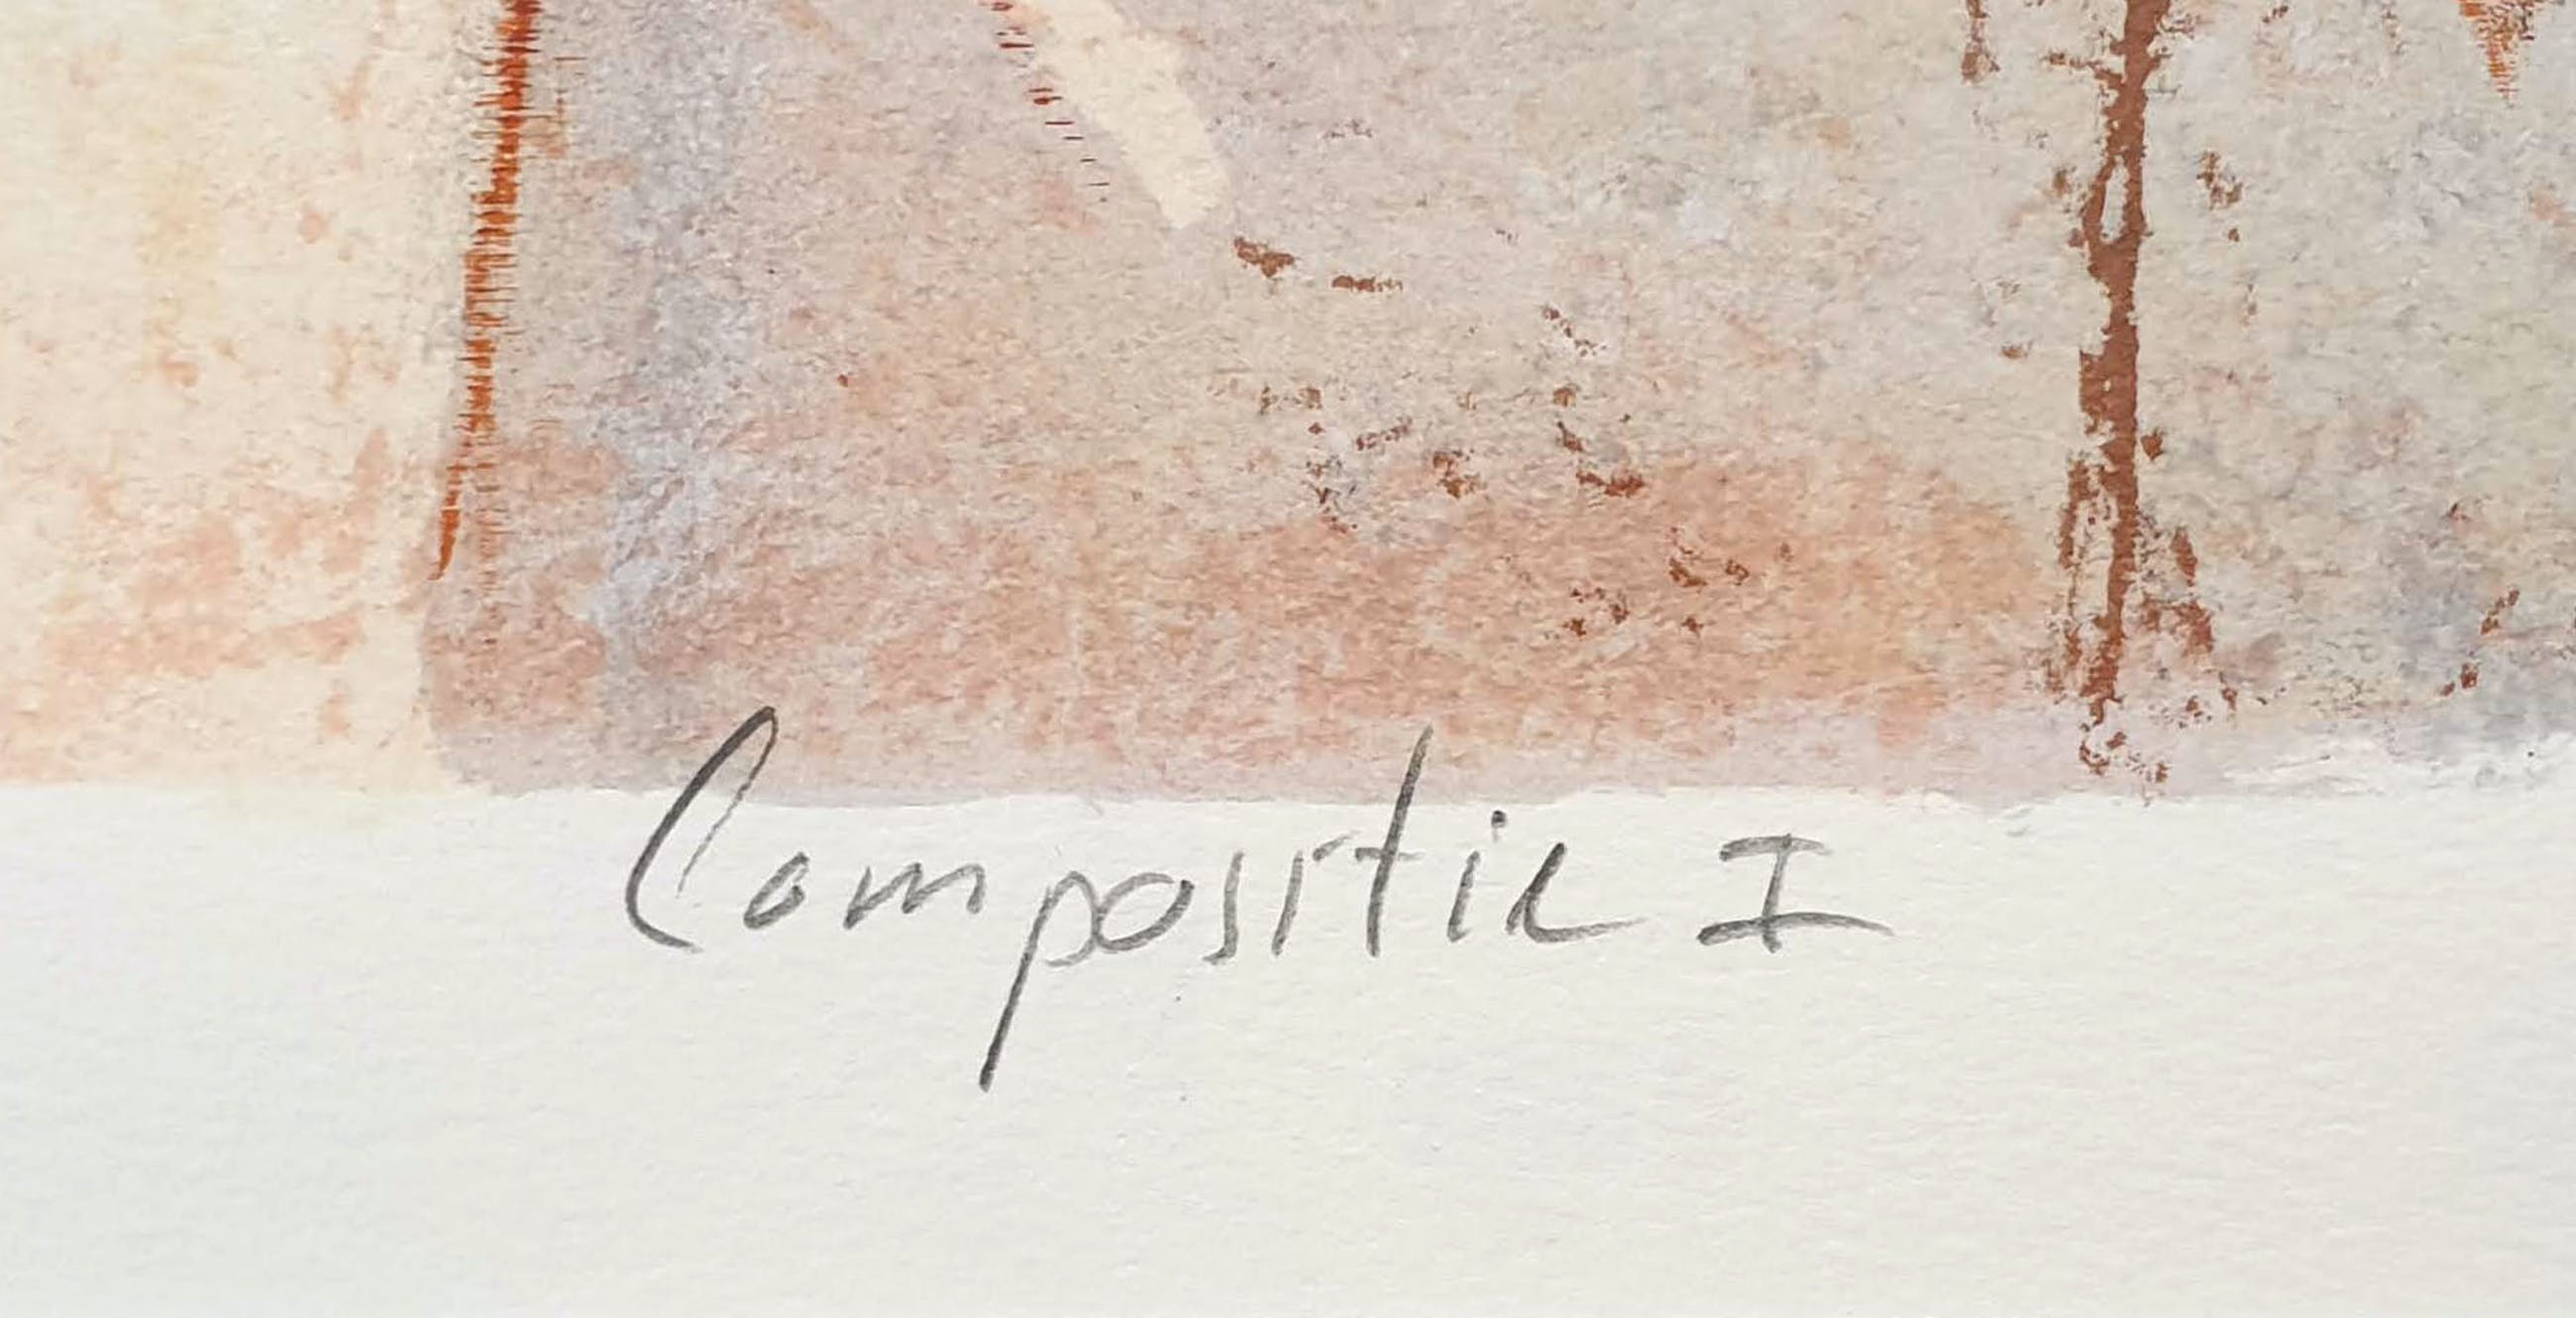 Compositie I